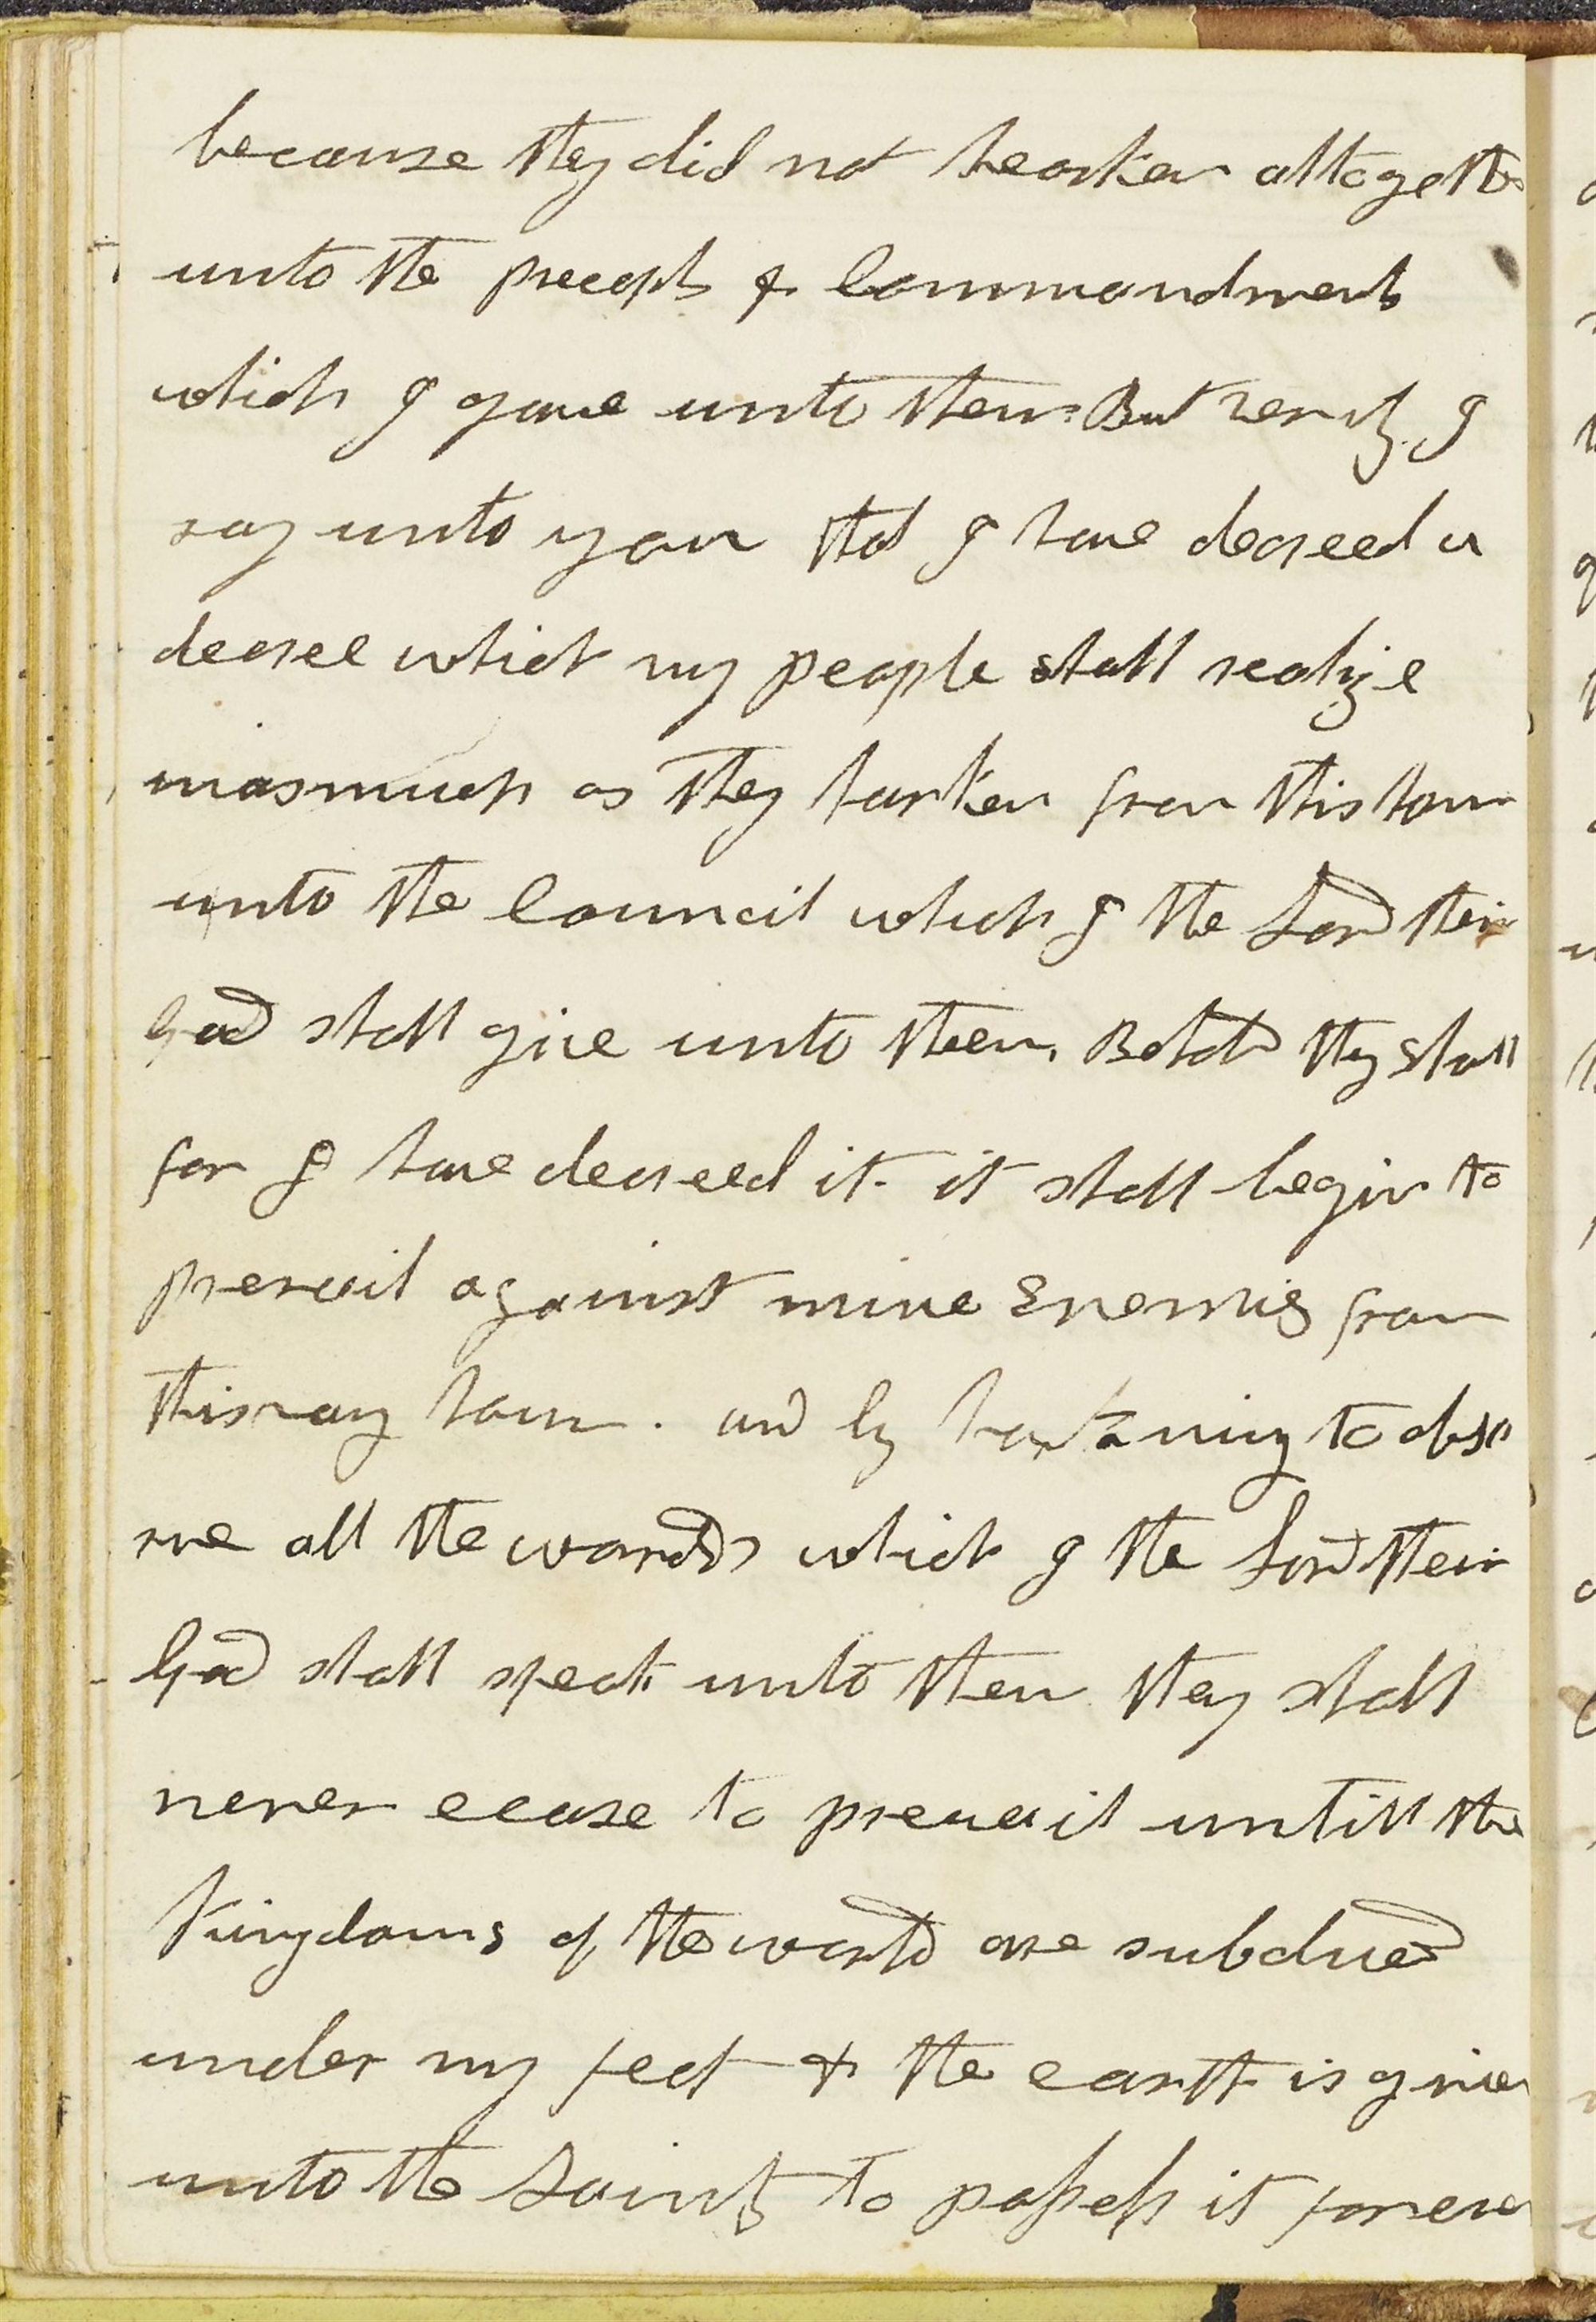 because they did not hearken alltogether
unto the precepts & Commandments
which I gave unto them. But verily I
say unto you that I have decreed a
decree which my people shall realize
inasmuch as they harken from this hour
unto the Council which I the Lord their
God shall give unto them. Behold they shall
for I have decreed it. it shall begin to
prevail against mine Enemies from
this vary hour. and by harkening to obse
rve all the words which I the Lord their
God shall speak unto them they shall
never cease to prevail untill the
Kingdoms of the world are subdued
under my feet & the earth is given
unto the Saints to possess it forever